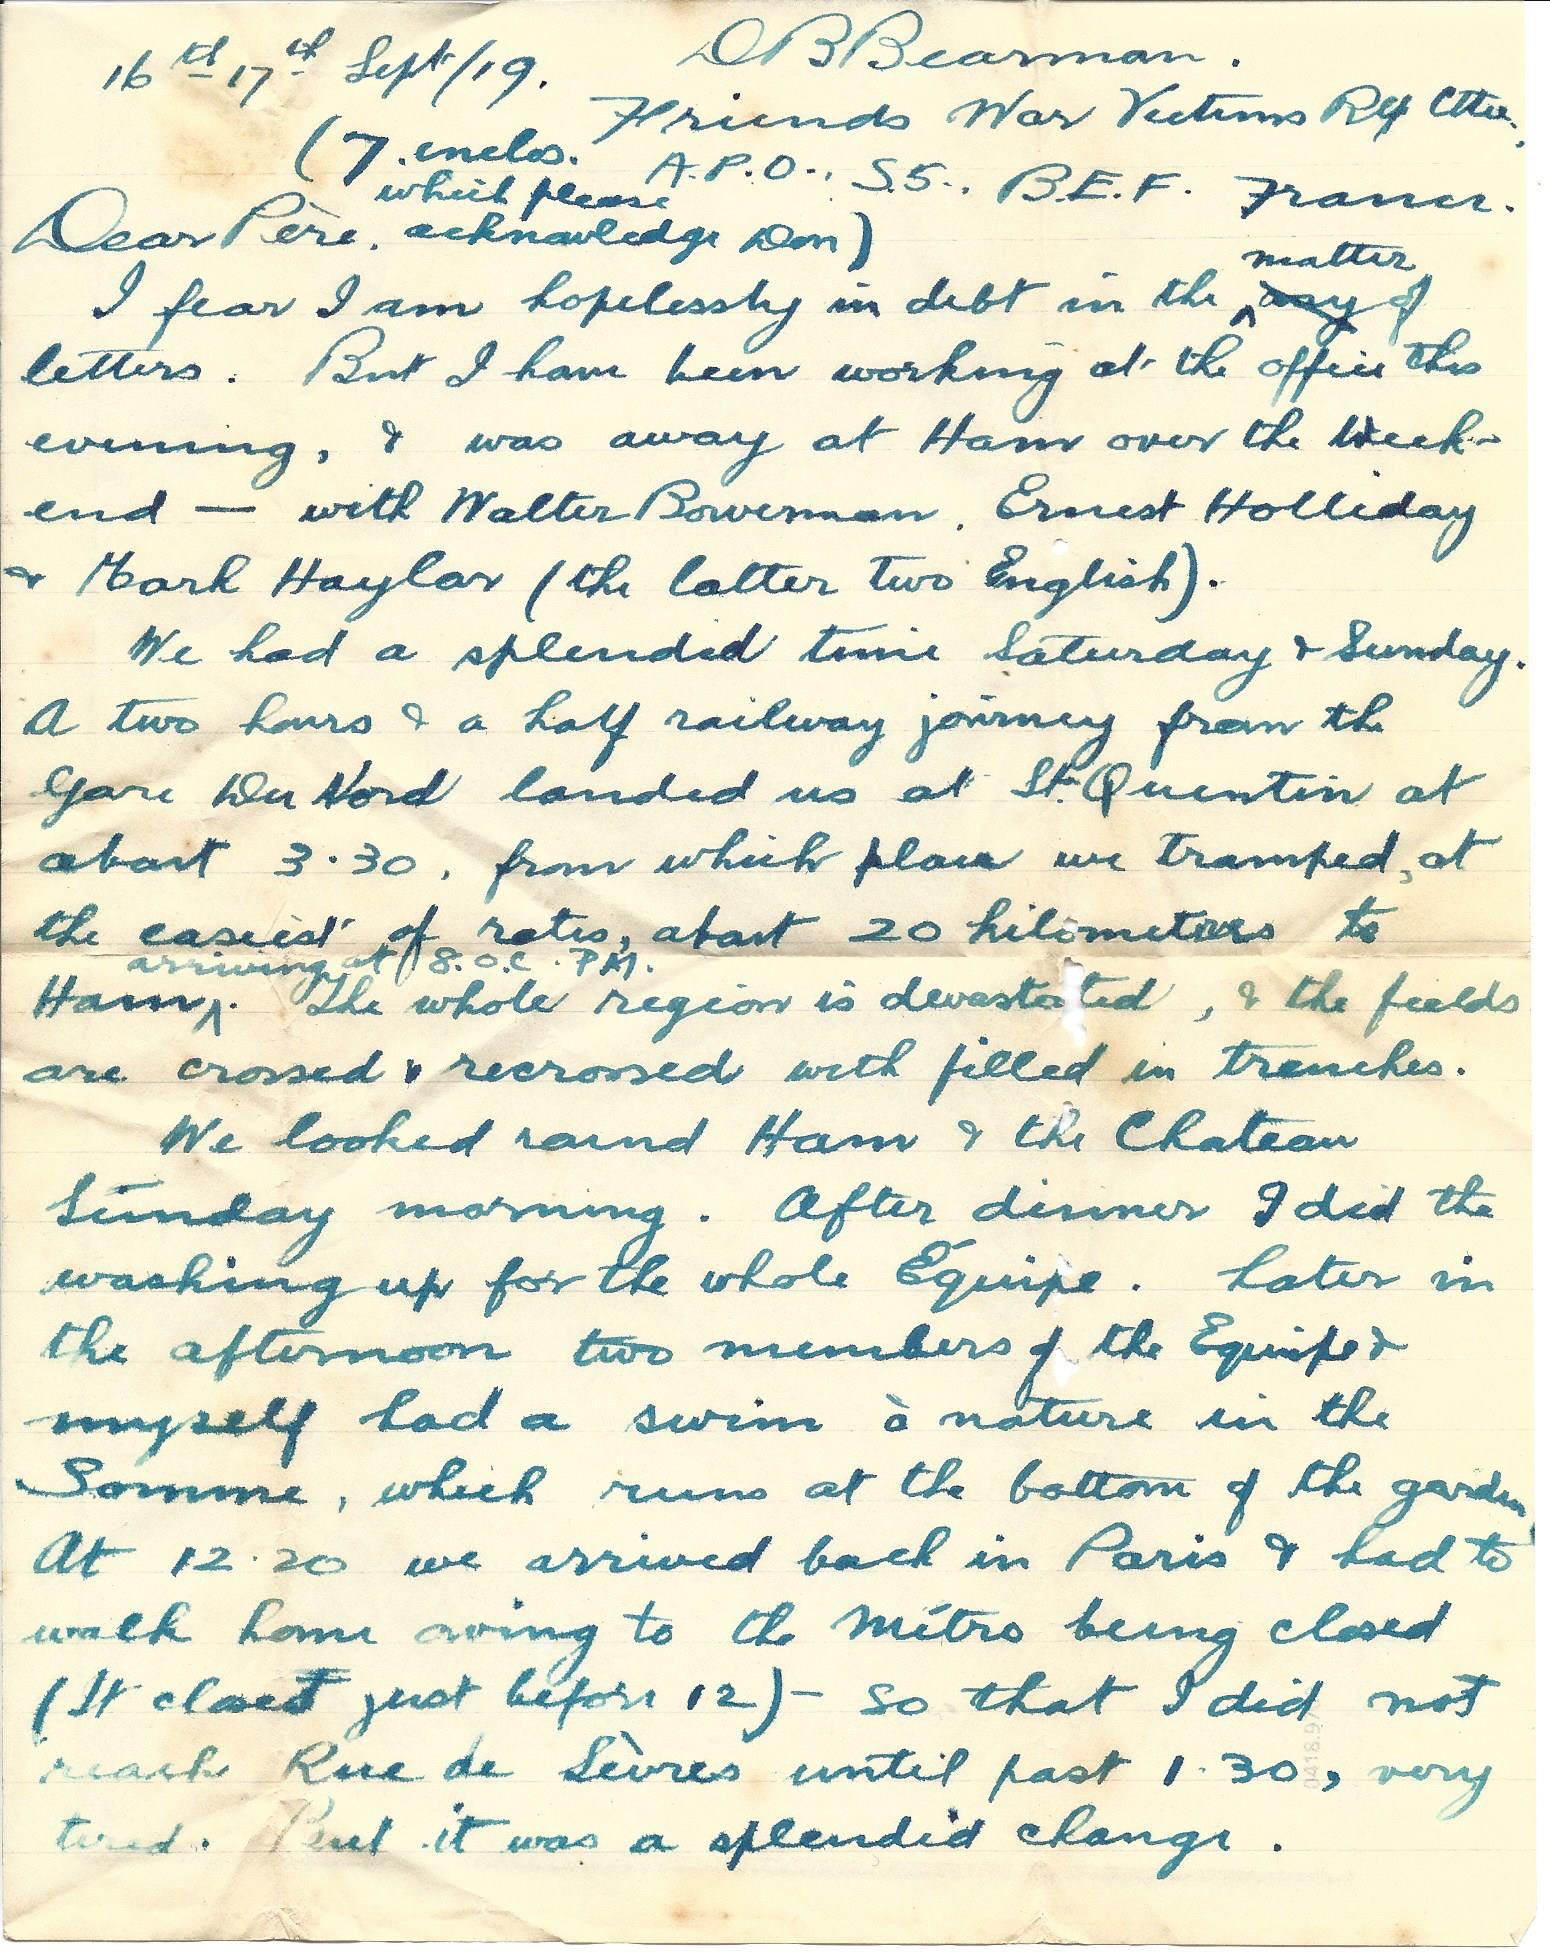 16th 17th Sept/19.
D B Bearman.
Friends War Victims Rlf Cttee,
A.P.O., S.5., B.E.F. France.
(7. enclos.
which please
acknowledge Don)
Dear Père,
matter
I fear I am hopelessly in debt in the way of
letters. But I have been working at the office this
evening, & was away at Ham over the week-
end — with Walter Bowerman, Ernest Holliday
& Mark Haylar (the latter two English).
We had a splendid time Saturday & Sunday.
A two hours & a half railway journey from the
Gare Du Nord landed us at St. Quentin at
about 3.30, from which place we tramped, at
the easiest of rates, about 20 kilometres to
arriving at 8.O.C. P.M.
Ham. The whole region is devastated, & the fields
are crossed & recrossed with filled in trenches.
We looked round Ham & the Chateau
Sunday morning. After dinner I did the
washing up for the whole Équipe. Later in
the afternoon two members of the Equipe &
myself had a swim à nature in the
Somme, which runs at the bottom of the garden,
At 12.20 we arrived back in Paris & had to
walk home owing to the Métro being closed
(It closes just before 12) — so that I did not
reach Rue de Sèvres until past 1.30, very
tired. But it was a splendid change.